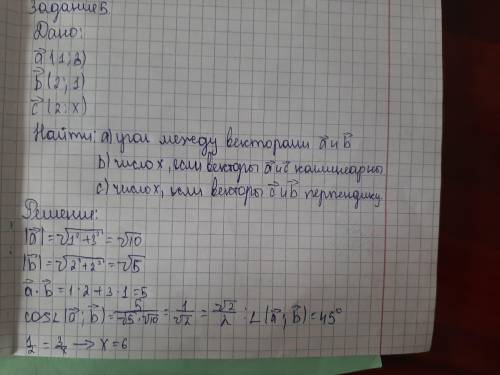 Задание 5.
Дано:
a⃗ (1; 3)
b⃗ (2; 1)
c⃗ (2; x)
Найти: a) угол между векторами a⃗ и b⃗
b) число x, если векторы a⃗ и c⃗ коллинеарны
c) число x, если векторы c⃗ и b⃗ перпендику
Решение:
|a⃗| = √1²+3² = √10
|b⃗| = √2²+2² = √5
a⃗ · b⃗ = 1 · 2 + 3 · 1 = 5
cos∠(a⃗; b⃗) = 5/(√5·√10) = 1/√2 = √2/2 ; ∠(a⃗; b⃗) = 45°
1/2 = 3/x → x = 6